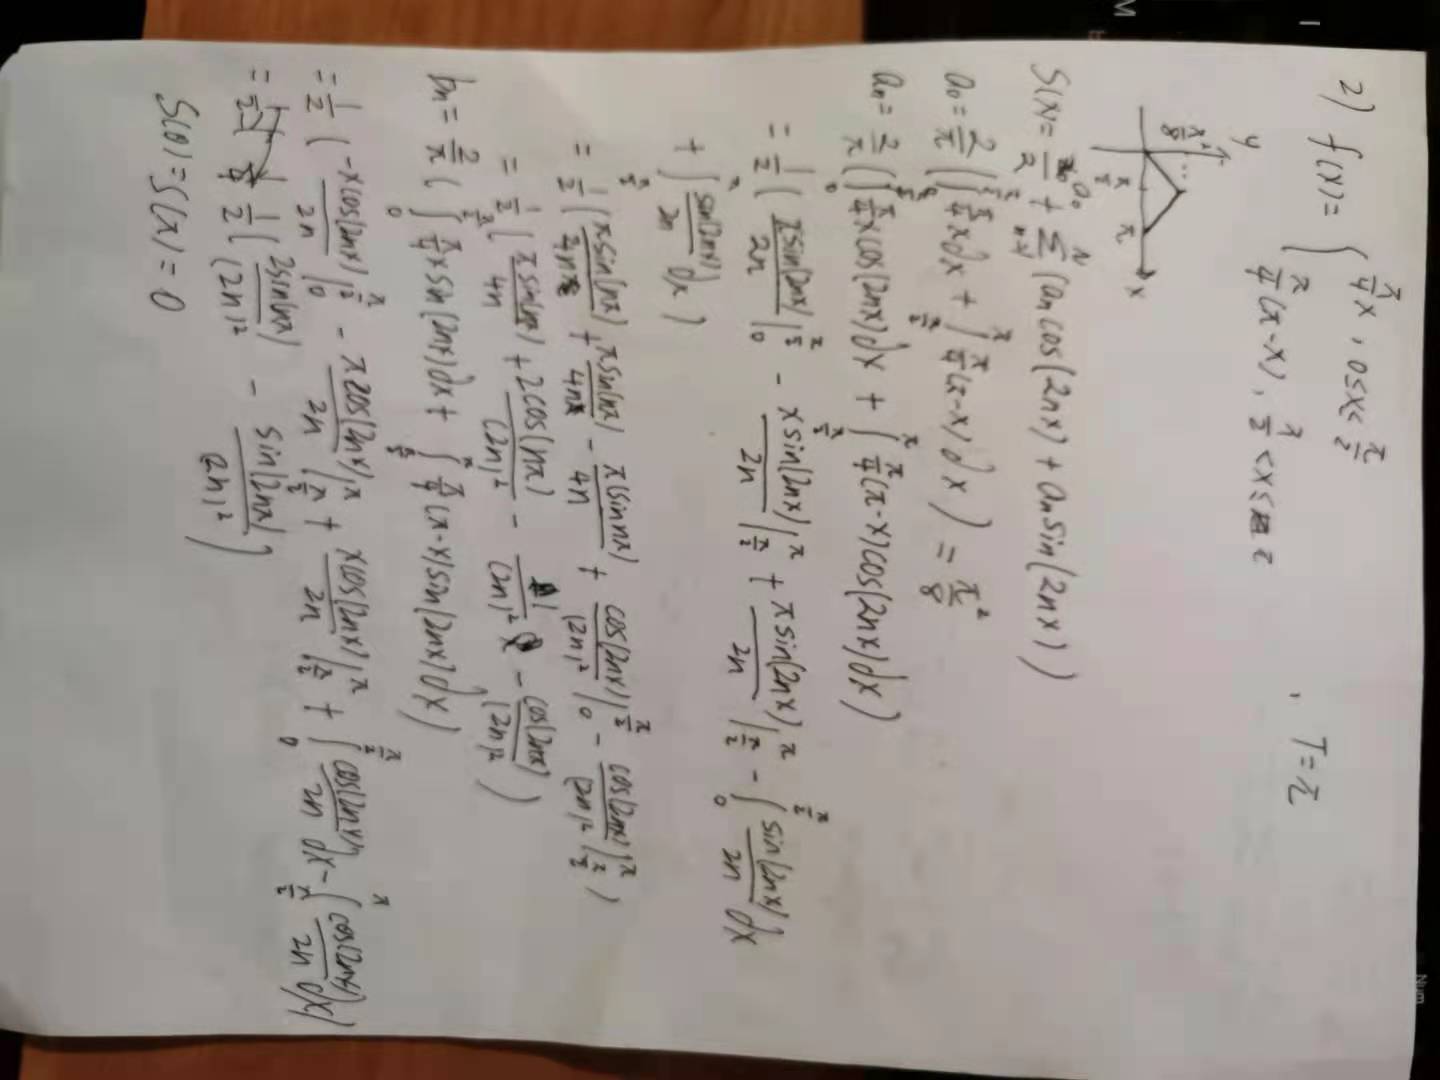 2) f(x)= { π/4 x , 0≤x≤ π/2
π/4 (π-x), π/2 <x≤ π
, T=π
y
π²/8
π/2 π x
S(x)= a₀/2 + Σ_{n=1}^{N} (aₙcos(2nx) + aₙsin(2nx))
a₀= 2/π (∫_0^{π/2} π/4 xdx + ∫_{π/2}^{π} π/4 (π-x)dx) = π²/8
aₙ= 2/π (∫_0^{π/2} π/4 xcos(2nx)dx + ∫_{π/2}^{π} π/4 (π-x)cos(2nx)dx)
= 1/2 ( xsin(2nx)/2n |_0^{π/2} - xsin(2nx)/2n |_{π/2}^{π} + πsin(2nx)/2n |_{π/2}^{π} - ∫_0^{π/2} sin(2nx)/2n dx
+ ∫_{π/2}^{π} sin(2nx)/2n dx )
= 1/2 ( πsin(nπ)/4n + πsin(nπ)/4n - π(sinnπ)/4n + cos(2nx)/(2n)² |_0^{π/2} - cos(2nx)/(2n)² |_{π/2}^{π} )
= 1/2 ( πsin(nπ)/4n + 2cos(nπ)/(2n)² - 1/(2n)² - cos(2nπ)/(2n)² )
bₙ= 2/π ( ∫_0^{π/2} π/4 xsin(2nx)dx + ∫_{π/2}^{π} π/4 (π-x)sin(2nx)dx)
= 1/2 ( -xcos(2nx)/2n |_0^{π/2} - πcos(2nx)/2n |_{π/2}^{π} + xcos(2nx)/2n |_{π/2}^{π} + ∫_0^{π/2} cos(2nx)/2n dx - ∫_{π/2}^{π} cos(2nx)/2n dx)
= 1/2 ( 2sin(nπ)/(2n)² - sin(2nπ)/(2n)² )
S(0)=S(π)=0
Num